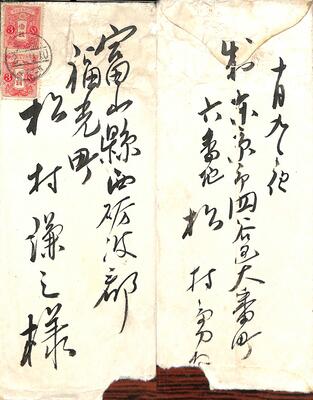 富山縣西砺波郡
福光町
松村謙三様
十月九日
東京市四谷区大番町
六番地
松村